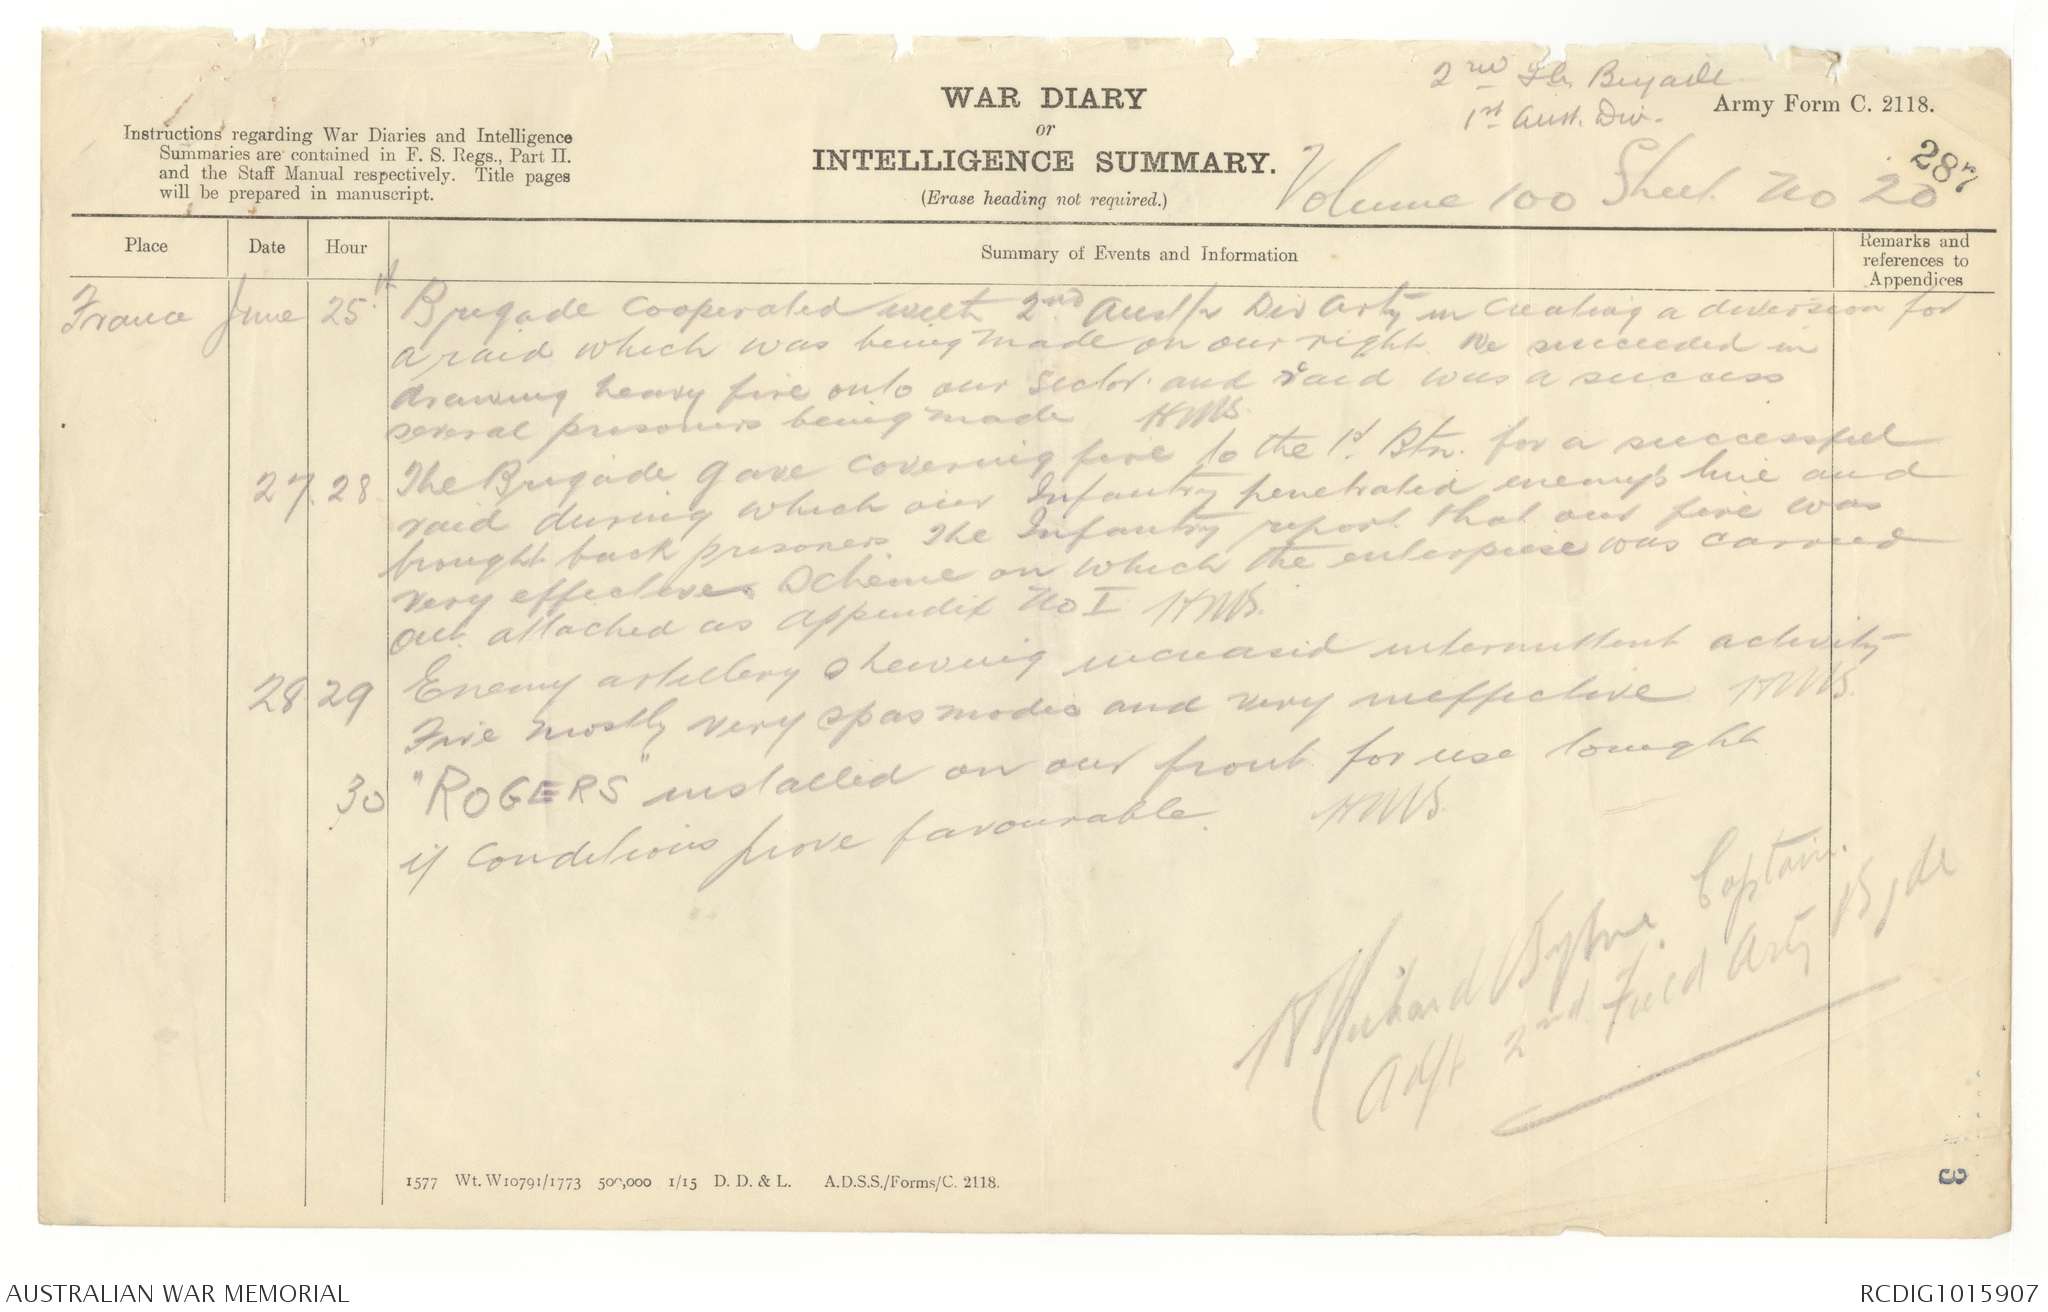 2nd Brigade
1st Aust. Div.
Army Form C. 2118.
WAR DIARY
or
INTELLIGENCE SUMMARY.
(Erase heading not required.)
Instructions regarding War Diaries and Intelligence
Summaries are contained in F. S. Regs., Part II.
and the Staff Manual respectively. Title pages
will be prepared in manuscript.
287
Volume 100 Sheet No 20
Place Date Hour Summary of Events and Information Remarks and references to Appendices
France June 25th Brigade cooperated with 2nd Div Arty in creating a diversion for
a raid which was being made on our right. We succeeded in
drawing heavy fire onto our sector and raid was a success
several prisoners being made HMB.
27. 28. The Brigade gave covering fire to the 1st. Btn. for a successful
raid during which our Infantry penetrated enemy's line and
brought back prisoners. The Infantry report that our fire was
very effective. Scheme on which the enterprise was carried
out attached as appendix No I. HMB.
28 29 Enemy artillery shewing increased intermittent activity
Fire mostly very spasmodic and very ineffective HMB.
30 "ROGERS" installed on our front for use tonight
if conditions prove favourable. HMB.
Captain.
Adjt 2nd Field Arty Bgde
1577 Wt. W10791/1773 500,000 1/15 D. D. & L. A.D.S.S./Forms/C. 2118.
3
AUSTRALIAN WAR MEMORIAL
RCDIG1015907